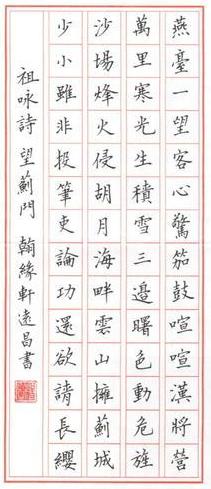 燕臺一望客心驚笳鼓喧喧漢將營
萬里寒光生積雪三邊曙色動危旌
沙場烽火侵胡月海畔雲山擁薊城
少小雖非投筆吏論功還欲請長纓
祖咏詩 望薊門 翰緣軒遠昌書